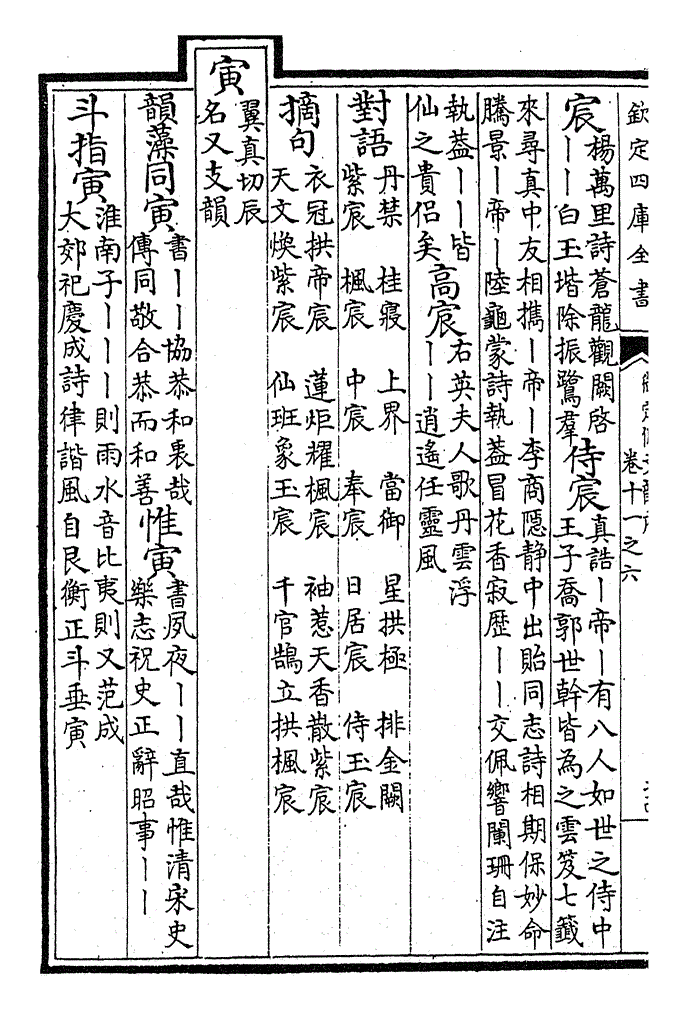 欽定四庫全書
卷十一之六
宸
楊萬里詩蒼龍觀闕啓
丨丨白玉堦除振鷺羣
侍宸
真誥丨帝丨有八人如世之侍中
王子喬郭世幹皆為之雲笈七籤
來尋真中友相攜丨帝丨李商隱静中出貽同志詩相期保妙命
騰景丨帝丨陸龜蒙詩執葢冒花香寂歷丨丨交佩響闌珊自注
執葢丨丨皆
仙之貴侶矣
高宸
右英夫人歌丹雲浮
丨丨逍遙任靈風
對語
丹禁 桂寢 上界 當御 星拱極 排金闕
紫宸 楓宸 中宸 奉宸 日居宸 侍玉宸
摘句
衣冠拱帝宸 蓮炬耀楓宸 袖惹天香散紫宸
天文煥紫宸 仙班象玉宸 千官鵠立拱楓宸
寅
翼真切辰
名又支韻
韻藻同寅
書丨丨協恭和衷哉
傳同敬合恭而和善
惟寅
書夙夜丨丨直哉惟清宋史
樂志祝史正辭昭事丨丨
斗指寅
淮南子丨丨丨則雨水音比夷則又范成
大郊祀慶成詩律諧風自艮衡正斗垂寅